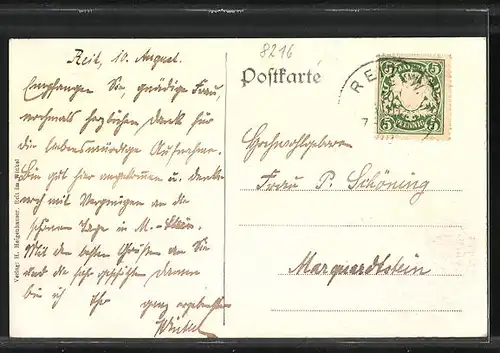 Reit, 10. August.
Empfangen Sie, gnädige Frau,
nochmals herzlichen Dank für
die liebenswürdige Aufnahme.
Bin gut hier angekommen u. denke
noch mit Vergnügen an die
schönen Tage in M.-
Mit den besten Grüßen an Sie
und die sehr geschätzten Damen
bin ich Ihr ganz ergebenster
8216
Postkarte
REIT
5 5
5 PFENNIG 5
Hochwohlgeboren
Frau P. Schöning
Marquardtstein
Verlag: H. Heigenhauser, Reit im Winkel